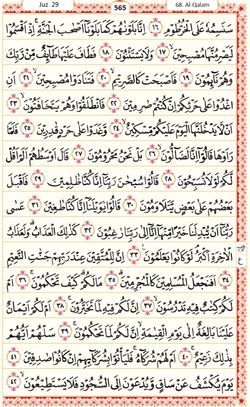 Juz 29
565
68. Al-Qalam
سَنَسِمُهٗ عَلَى الْخُرْطُوْمِ ١٦ اِنَّا بَلَوْنٰهُمْ كَمَا بَلَوْنَاۤ اَصْحٰبَ الْجَنَّةِ ۚ اِذْ اَقْسَمُوْا
لَيَصْرِمُنَّهَا مُصْبِحِيْنَ ١٧ وَلَا يَسْتَثْنُوْنَ ١٨ فَطَافَ عَلَيْهَا طَآئِفٌ مِّنْ رَّبِّكَ
وَهُمْ نَآئِمُوْنَ ١٩ فَاَصْبَحَتْ كَالصَّرِيْمِ ٢٠ فَتَنَادَوْا مُصْبِحِيْنَ ٢١ اَنِ
اغْدُوْا عَلٰى حَرْثِكُمْ اِنْ كُنْتُمْ صٰرِمِيْنَ ٢٢ فَانْطَلَقُوْا وَهُمْ يَتَخَافَتُوْنَ ٢٣
اَنْ لَّا يَدْخُلَنَّهَا الْيَوْمَ عَلَيْكُمْ مِّسْكِيْنٌ ٢٤ وَّغَدَوْا عَلٰى حَرْدٍ قٰدِرِيْنَ ٢٥ فَلَمَّا
رَاَوْهَا قَالُوْۤا اِنَّا لَضَآلُّوْنَ ٢٦ بَلْ نَحْنُ مَحْرُوْمُوْنَ ٢٧ قَالَ اَوْسَطُهُمْ اَلَمْ اَقُلْ
لَّكُمْ لَوْلَا تُسَبِّحُوْنَ ٢٨ قَالُوْا سُبْحٰنَ رَبِّنَاۤ اِنَّا كُنَّا ظٰلِمِيْنَ ٢٩ فَاَقْبَلَ
بَعْضُهُمْ عَلٰى بَعْضٍ يَّتَلَاوَمُوْنَ ٣٠ قَالُوْا يٰوَيْلَنَاۤ اِنَّا كُنَّا طٰغِيْنَ ٣١ عَسٰى
رَبُّنَاۤ اَنْ يُّبْدِلَنَا خَيْرًا مِّنْهَاۤ اِنَّاۤ اِلٰى رَبِّنَا رٰغِبُوْنَ ٣٢ كَذٰلِكَ الْعَذَابُ ؕ وَلَعَذَابُ
الْاٰخِرَةِ اَكْبَرُ ۘ لَوْ كَانُوْا يَعْلَمُوْنَ ٣٣ اِنَّ لِلْمُتَّقِيْنَ عِنْدَ رَبِّهِمْ جَنّٰتِ النَّعِيْمِ
٣٤ اَفَنَجْعَلُ الْمُسْلِمِيْنَ كَالْمُجْرِمِيْنَ ٣٥ مَا لَكُمْ ٙ كَيْفَ تَحْكُمُوْنَ ٣٦ اَمْ
لَكُمْ كِتٰبٌ فِيْهِ تَدْرُسُوْنَ ٣٧ اِنَّ لَكُمْ فِيْهِ لَمَا تَخَيَّرُوْنَ ٣٨ اَمْ لَكُمْ اَيْمَانٌ
عَلَيْنَا بَالِغَةٌ اِلٰى يَوْمِ الْقِيٰمَةِ ۙ اِنَّ لَكُمْ لَمَا تَحْكُمُوْنَ ٣٩ سَلْهُمْ اَيُّهُمْ
بِذٰلِكَ زَعِيْمٌ ٤٠ اَمْ لَهُمْ شُرَكَآءُ ۛ فَلْيَاْتُوْا بِشُرَكَآئِهِمْ اِنْ كَانُوْا صٰدِقِيْنَ ٤١
يَوْمَ يُكْشَفُ عَنْ سَاقٍ وَّيُدْعَوْنَ اِلَى السُّجُوْدِ فَلَا يَسْتَطِيْعُوْنَ ٤٢